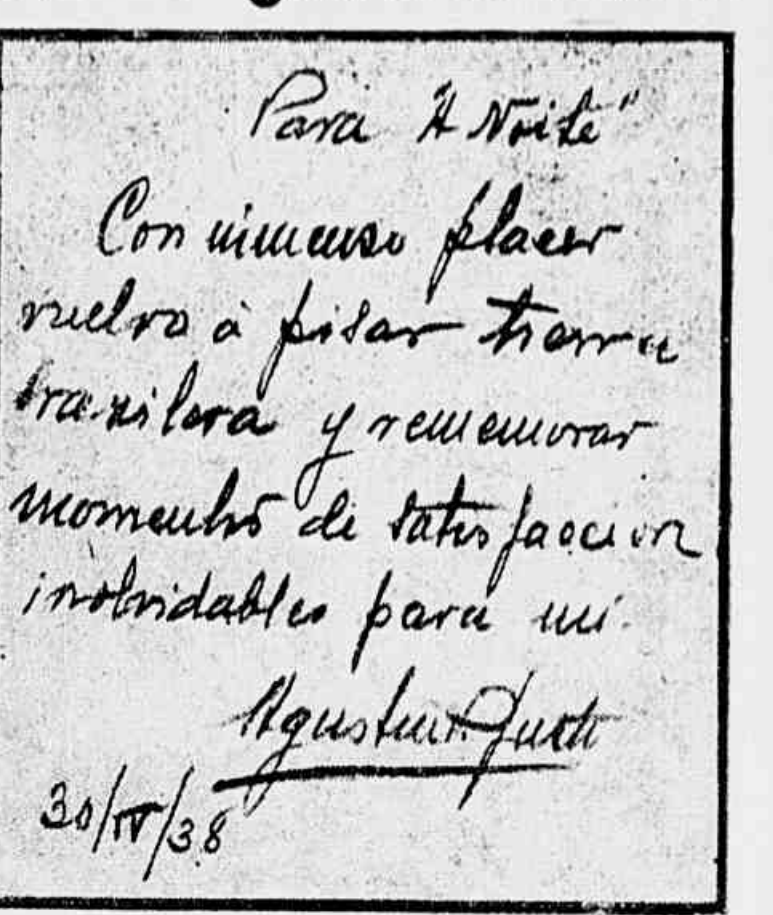 Para "A Noite"
Con inmenso placer
vuelvo á pisar tierra
brazilera y rememorar
momentos de satisfaccion
inolvidables para mi.
Agustin P. Justo
30/IV/38